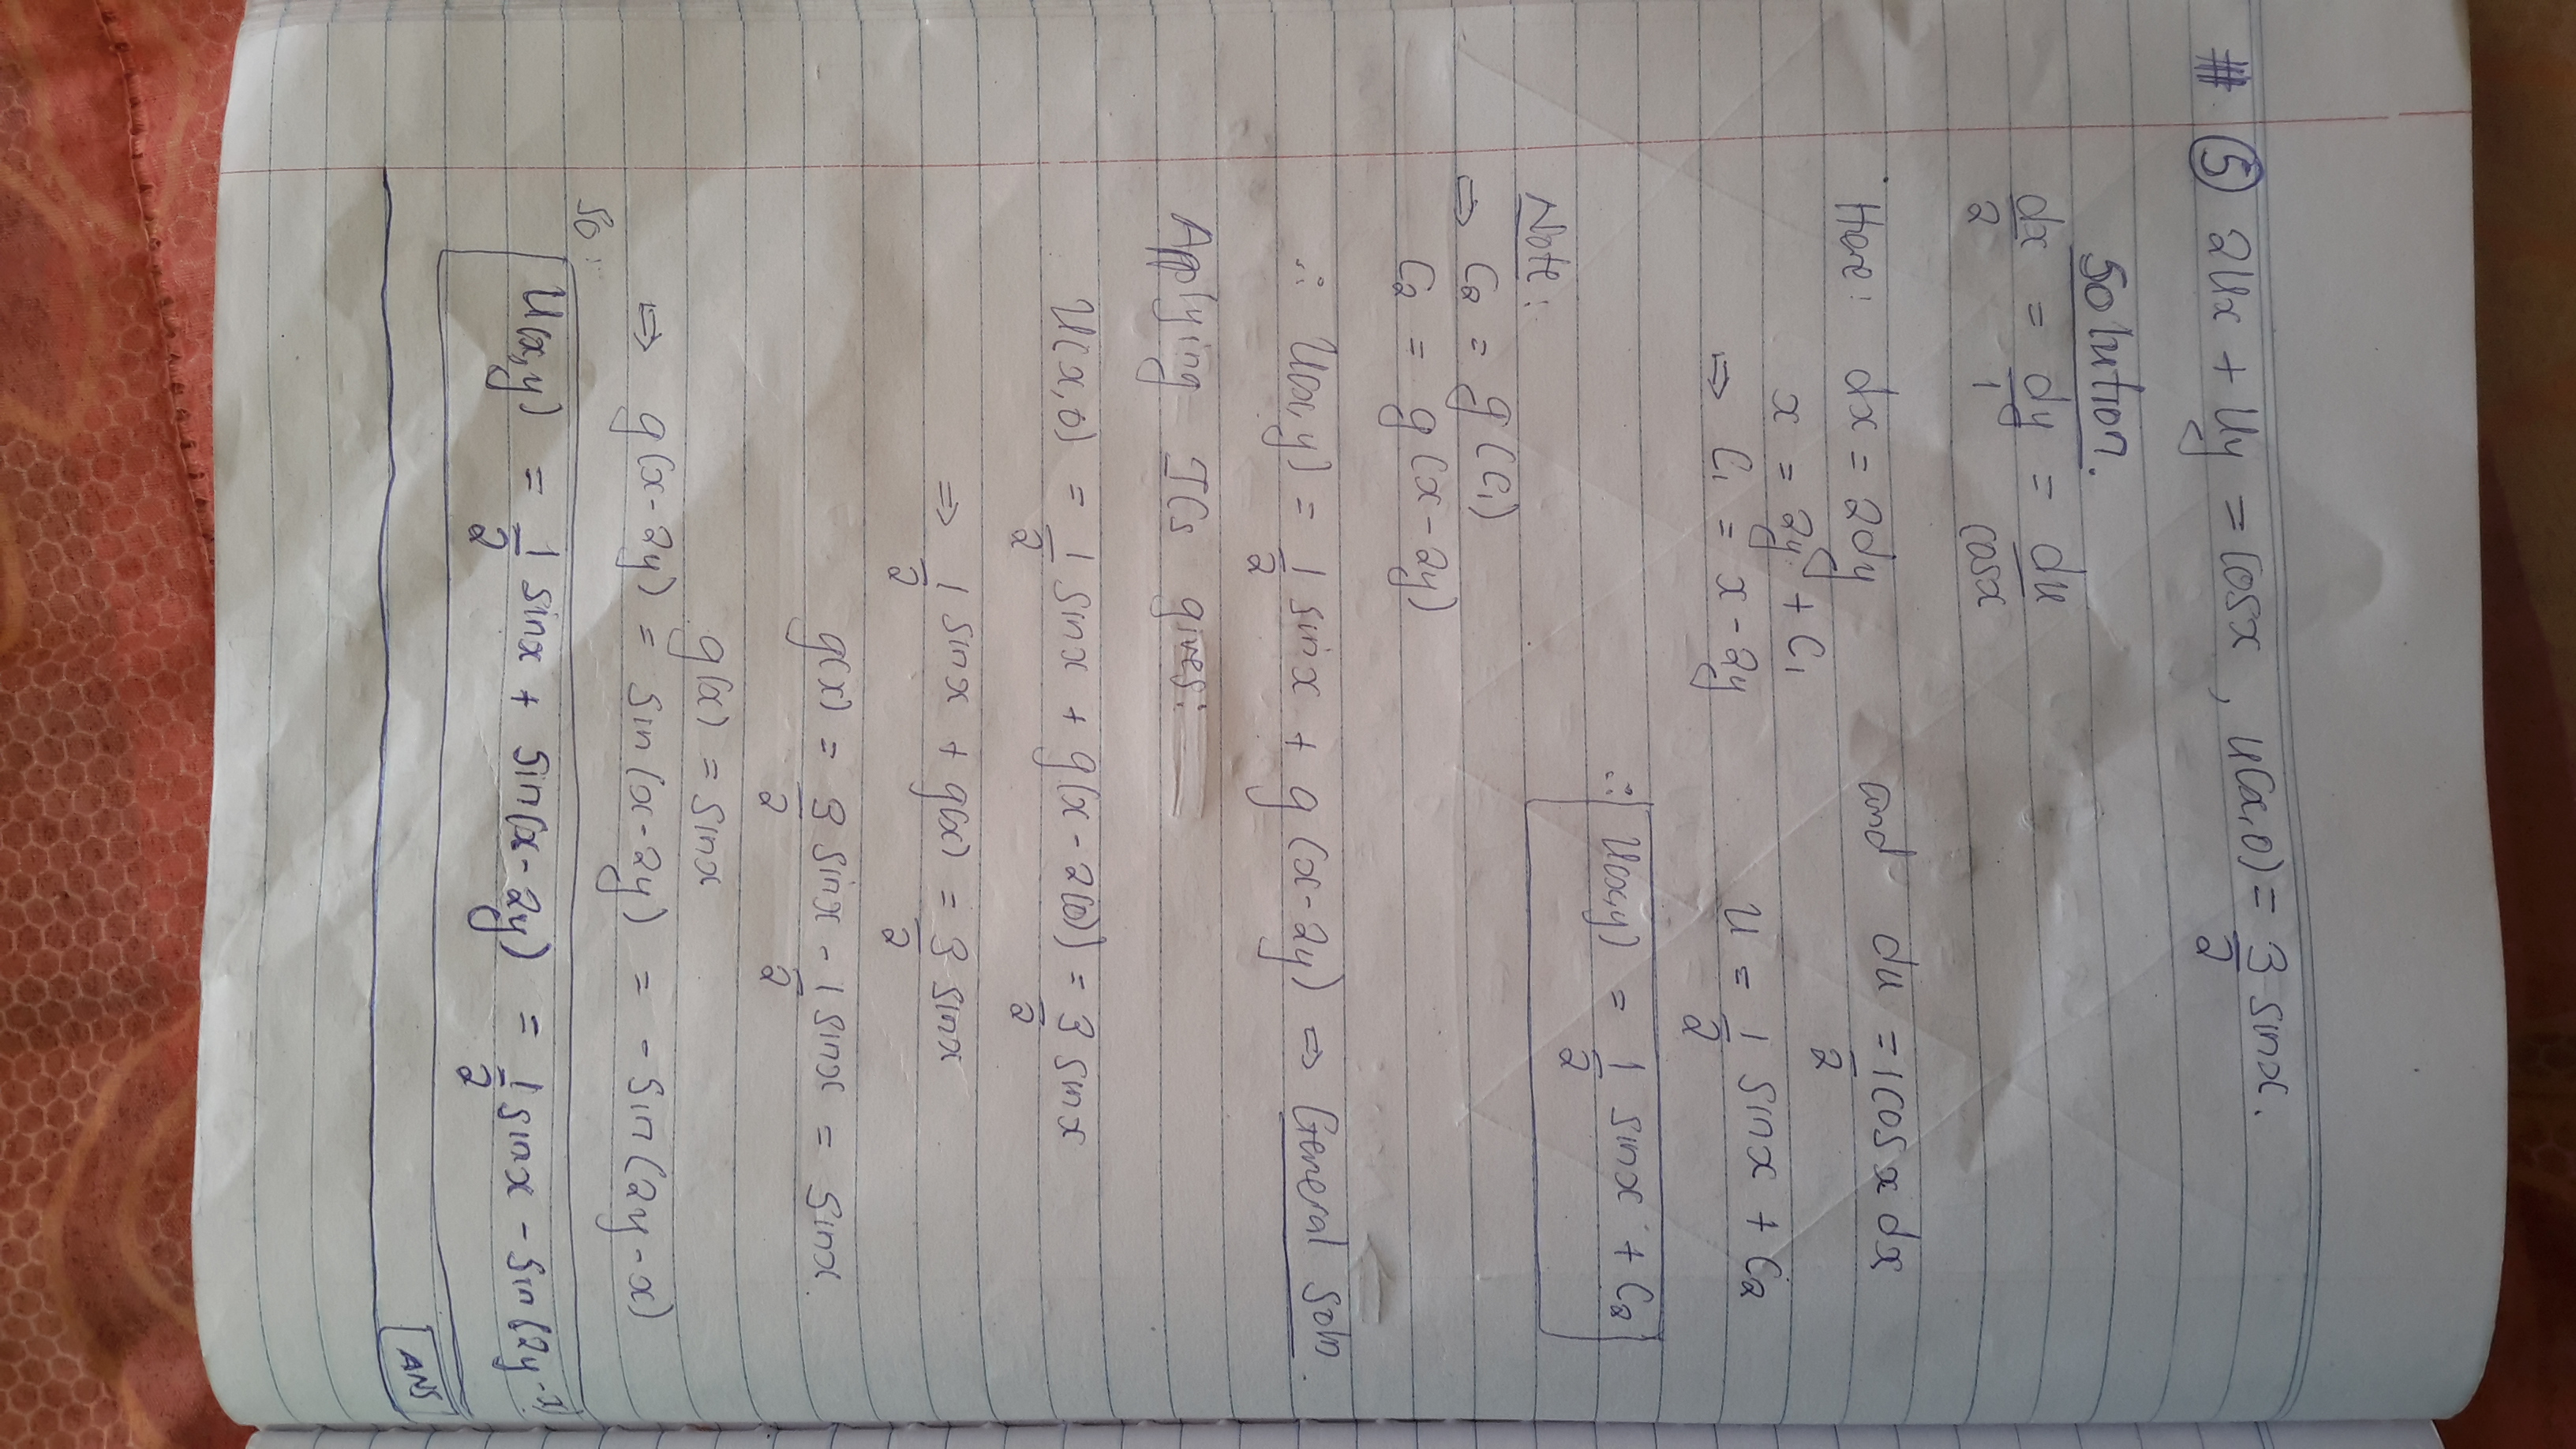 # ⑤ 2Ux + Uy = cosx , u(x,0) = 3/2 sinx.
Solution.
dx/2 = dy/1 = du/cosx
Here: dx = 2dy and du = 1/2 cosx dx
x = 2y + C₁ u = 1/2 sinx + C₂
⇒ C₁ = x - 2y
∴ U(x,y) = 1/2 sinx + C₂
Note:
⇒ C₂ = g(C₁)
C₂ = g(x - 2y)
∴ U(x,y) = 1/2 sinx + g(x - 2y) ⇒ General Soln.
Applying ICs gives:
U(x,0) = 1/2 sinx + g(x - 2(0)) = 3/2 sinx
⇒ 1/2 sinx + g(x) = 3/2 sinx
g(x) = 3/2 sinx - 1/2 sinx = sinx
g(x) = sinx
⇒ g(x - 2y) = sin(x - 2y) = - sin(2y - x)
So:
U(x,y) = 1/2 sinx + sin(x - 2y) = 1/2 sinx - sin(2y - x)
ANS